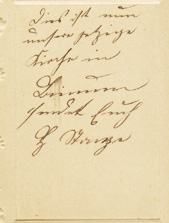 Dies ist nun
unsere jetzige
Kirche in
sendet Euch
Stange